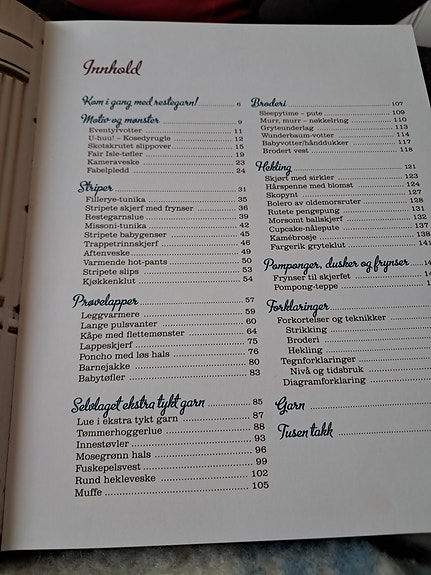 Innhold
Kom i gang med restegarn! 6
Motiv og mønster 9
Eventyrvotter 11
U-huu! – Kosedyrugle 12
Skotskrutet slippover 15
Fair Isle-tøfler 19
Kameraveske 23
Fabelpledd 24
Striper 31
Fillerye-tunika 35
Stripete skjerf med frynser 36
Restegarnslue 39
Missoni-tunika 42
Stripete babygenser 45
Trappetrinnskjerf 46
Aftenveske 49
Varmende hot-pants 50
Stripete slips 53
Kjøkkenklut 54
Prøvelapper 57
Leggvarmere 59
Lange pulsvanter 60
Kåpe med flettemønster 64
Lappeskjerf 75
Poncho med løs hals 76
Barnejakke 80
Babytøfler 83
Selvlaget ekstra tykt garn 85
Lue i ekstra tykt garn 87
Tømmerhoggerlue 88
Innestøvler 93
Mosegrønn hals 96
Fuskepelsvest 99
Rund hekleveske 102
Muffe 105
Broderi 107
Sleepytime – pute 109
Murr, murr – nøkkelring 110
Gryteunderlag 113
Wunderbaum-votter 114
Babyvotter/hånddukker 117
Brodert vest 118
Hekling 121
Skjørt med sirkler 123
Hårspenne med blomst 124
Skopynt 127
Bolero av oldemorsruter 128
Rutete pengepung 131
Morsomt ballskjerf 132
Cupcake-nålepute 137
Kamébrosje 138
Fargerik gryteklut 141
Pomponger, dusker og frynser
Frynser til skjerfet
Pompong-teppe
Forklaringer
Forkortelser og teknikker
Strikking
Broderi
Hekling
Tegnforklaringer
Nivå og tidsbruk
Diagramforklaring
Garn
Tusen takk